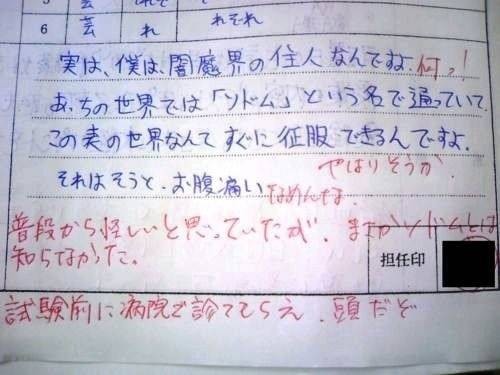 6 芸 れ それぞれ
実は、僕は、闇魔界の住人なんですよ 何っ!
あっちの世界では「ソドム」という名で通っていて
この表の世界なんてすぐに征服できるんですよ。
やはりそうか。
それはそうと、お腹痛い なめんな。
普段から怪しいと思っていたが、まさかソドムとは
知らなかった。
担任印
試験前に病院で診てもらえ、頭だぞ